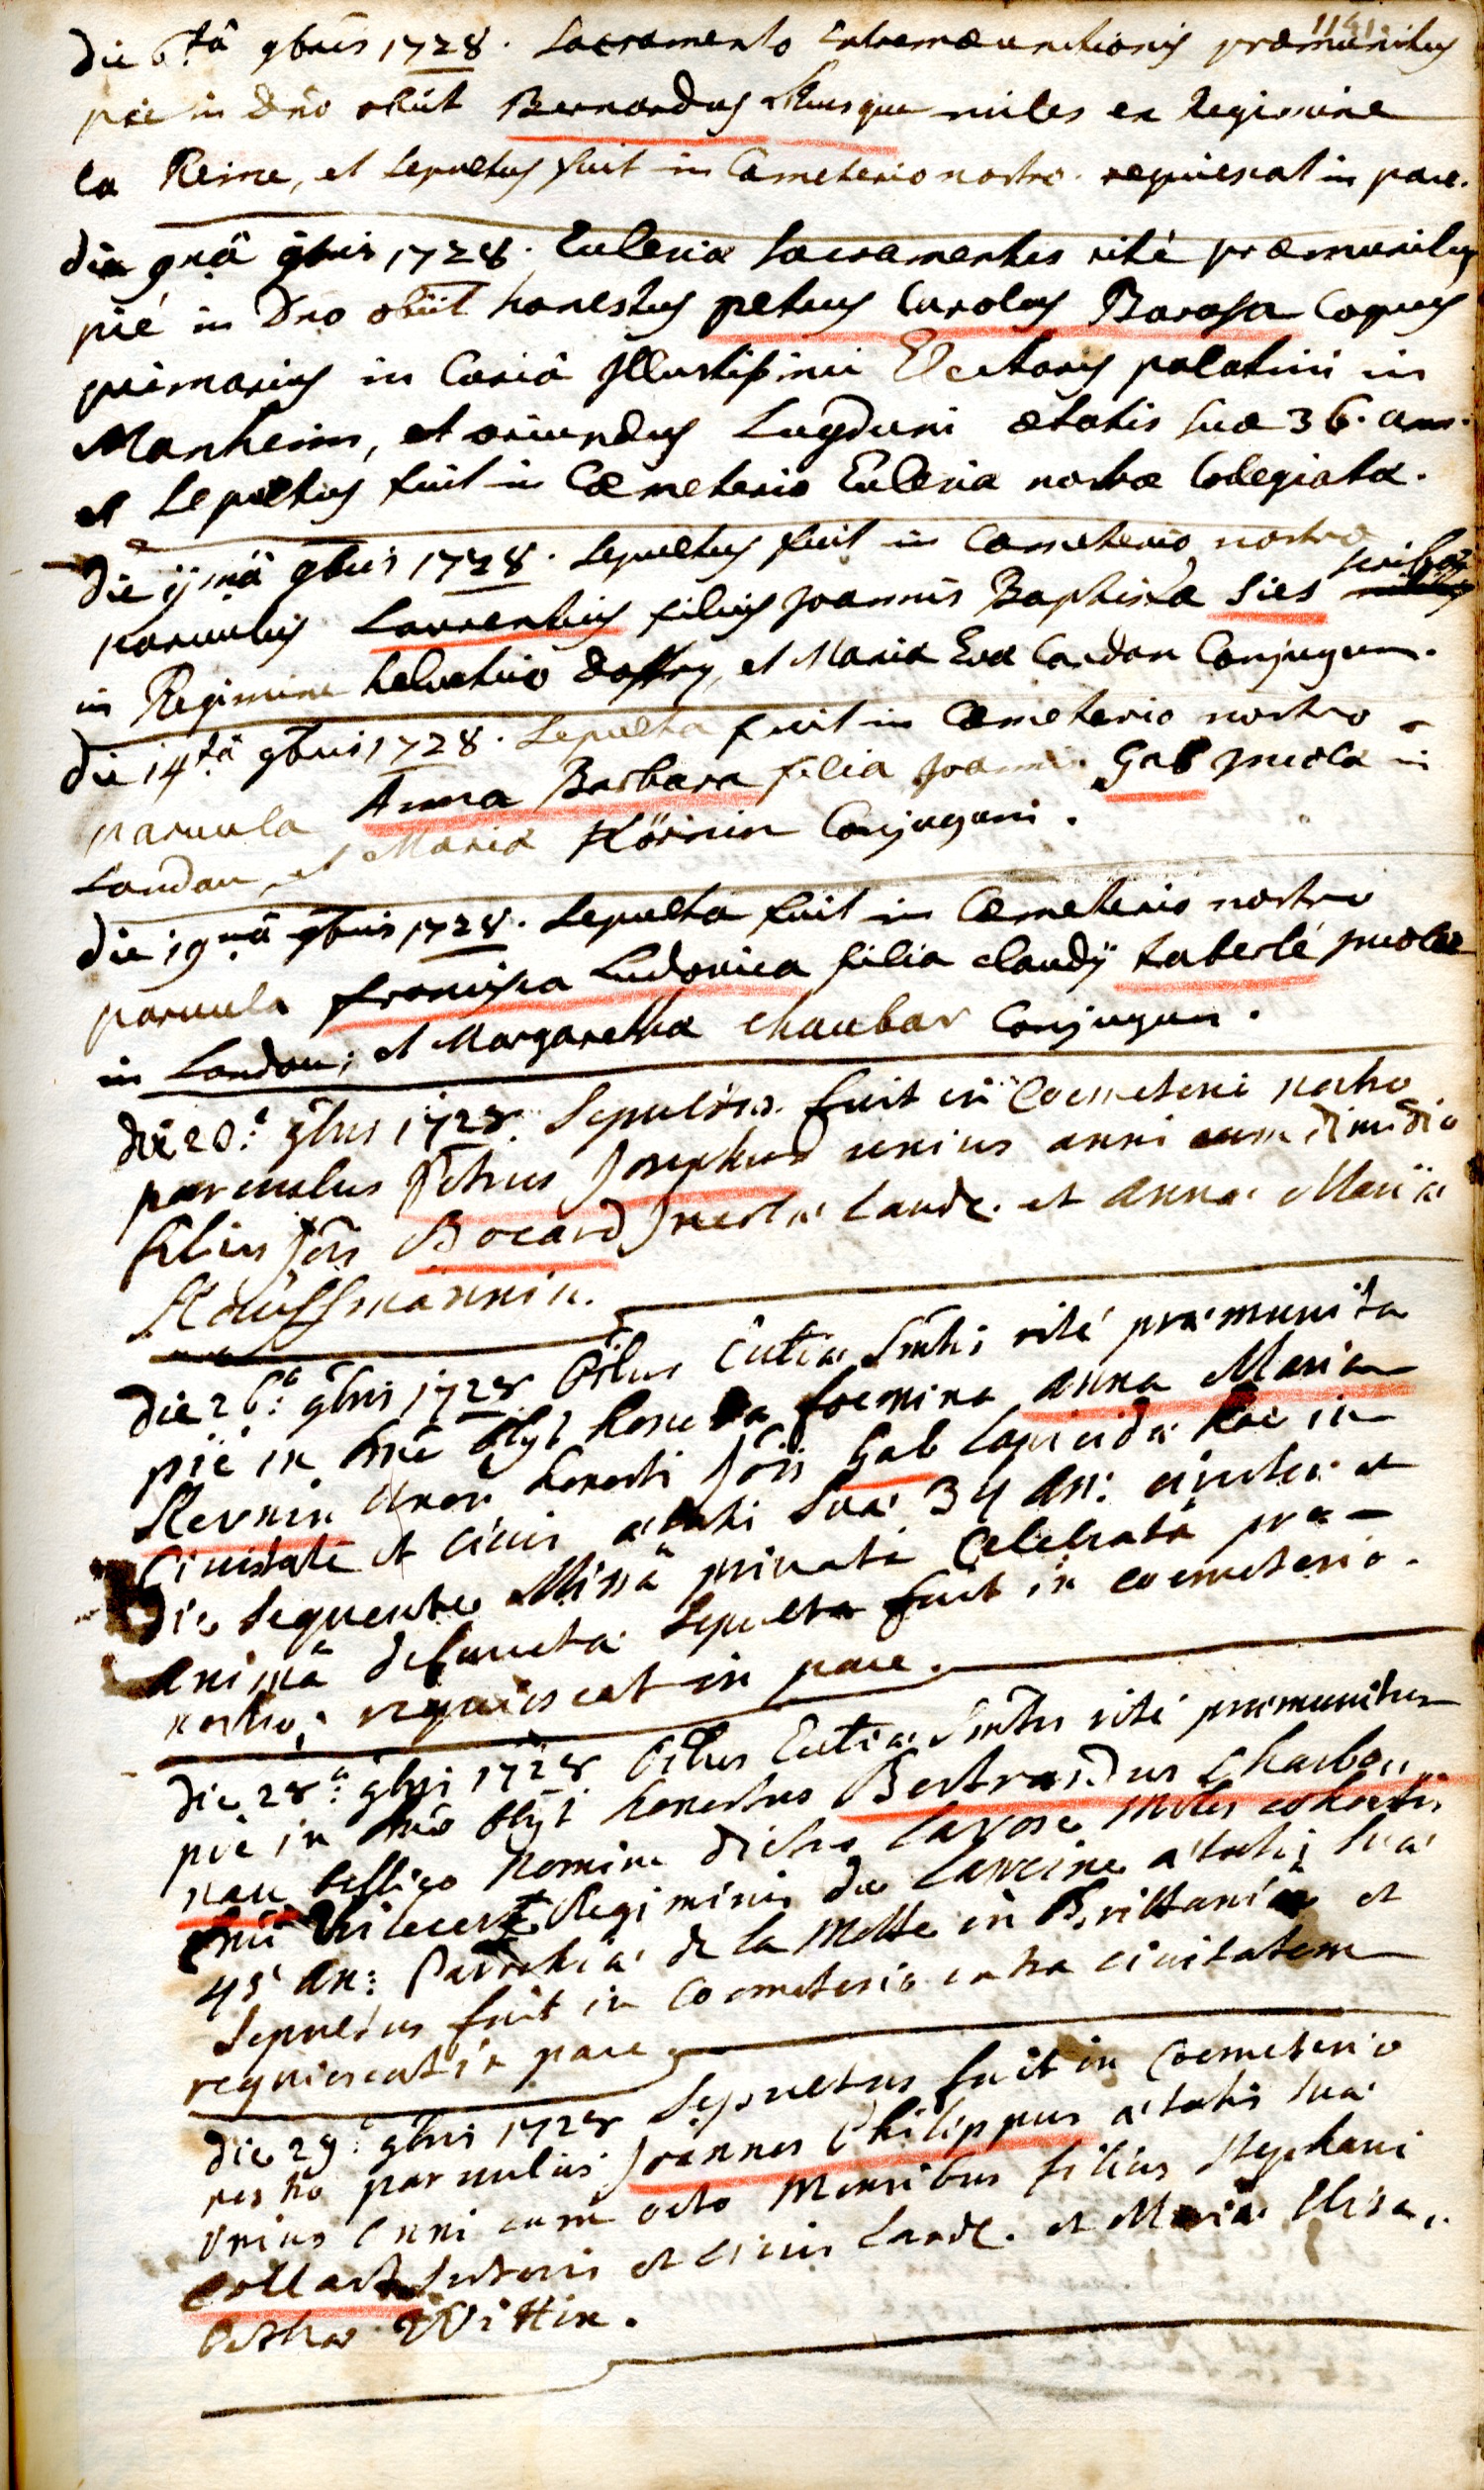 1141.
die 6tâ 9bris 1728. Sacramento Extremæ unctionis præmunitus
pie in dno obiit Bernardus miles ex Regimine
la Reine, et sepultus fuit in Cameterio nostro. requiescat in pace.
die 9nâ 9bris 1728. Eclesiæ sacramentis rité præmunitus
pié in Dno obiit honestus petrus Carolus Barassa Coquus
primarius in Curiâ Jllustrissimi Electoris palatini in
Manheim, et oriundus Lugduni ætatis suæ 36. ann.
et sepultus fuit in Cæmeterio Eclesiæ nostræ Colegiatæ.
die 11mâ 9bris 1728. sepultus fuit in Cæmeterio nostro
paruulus Laurentius filius Joannis Baptista Sies
in Regimine helvetico daffry, et Mariæ Evæ Cardon Conjugum.
die 14tâ 9bris 1728. Sepulta fuit in Cæmeterio nostro
paruula Anna Barbara filia Joannis Gab Jncolæ in
Landau, et Mariæ Körnin Conjugum.
die 19nâ 9bris 1728. Sepulta fuit in Cæmeterio nostro
paruula francisca Ludovica filia claudÿ taberlé Jncolæ
in Landau, et Margarethæ chaubar Conjugum.
die 20.ª 9bris 1728. Sepultus fuit in Coemeterio nostro
parvulus Petrus Josephus unius anni cum dimidio
filius Jois Bocard Jncolæ Landc. et Annæ Mariæ
Kauffmannin.
Die 26.ª 9bris 1728 Oibus Eccliæ Smtis rité præmunita
pié in Dno obyt honesta foemina Anna Maria
Kernin uxor honesti Jois Gab lapicidæ hac in
Civitate et civis ætatis suæ 34 an: ejusdem
die sequente Missâ privatâ Celebratâ pro
animâ defunctæ Sepulta fuit in coemeterio
nostro, requiescat in pace.
Die 28.ª 9bris 1728 Oibus Eccliæ Smtis rité præmunitus
pié in Dno obyt honestus Bertrandus Charbon,,
nau bellico nomine dictus Larose Miles cohortis
Dni Regiminis de ætatis suæ
45 an: Parochiæ de la Motte in Brittaniâ et
Sepultus fuit in Coemeterio extra civitatem
requiescat in pace.
Die 29.ª 9bris 1728 Sepultus fuit in Coemeterio
nostro parvulus Joannes Philippus ætatis suæ
unius anni cum octo mensibus filius Stephani
Collart Sutoris et civis Landc. et Mariæ Elisa,,
bethæ Wittin.